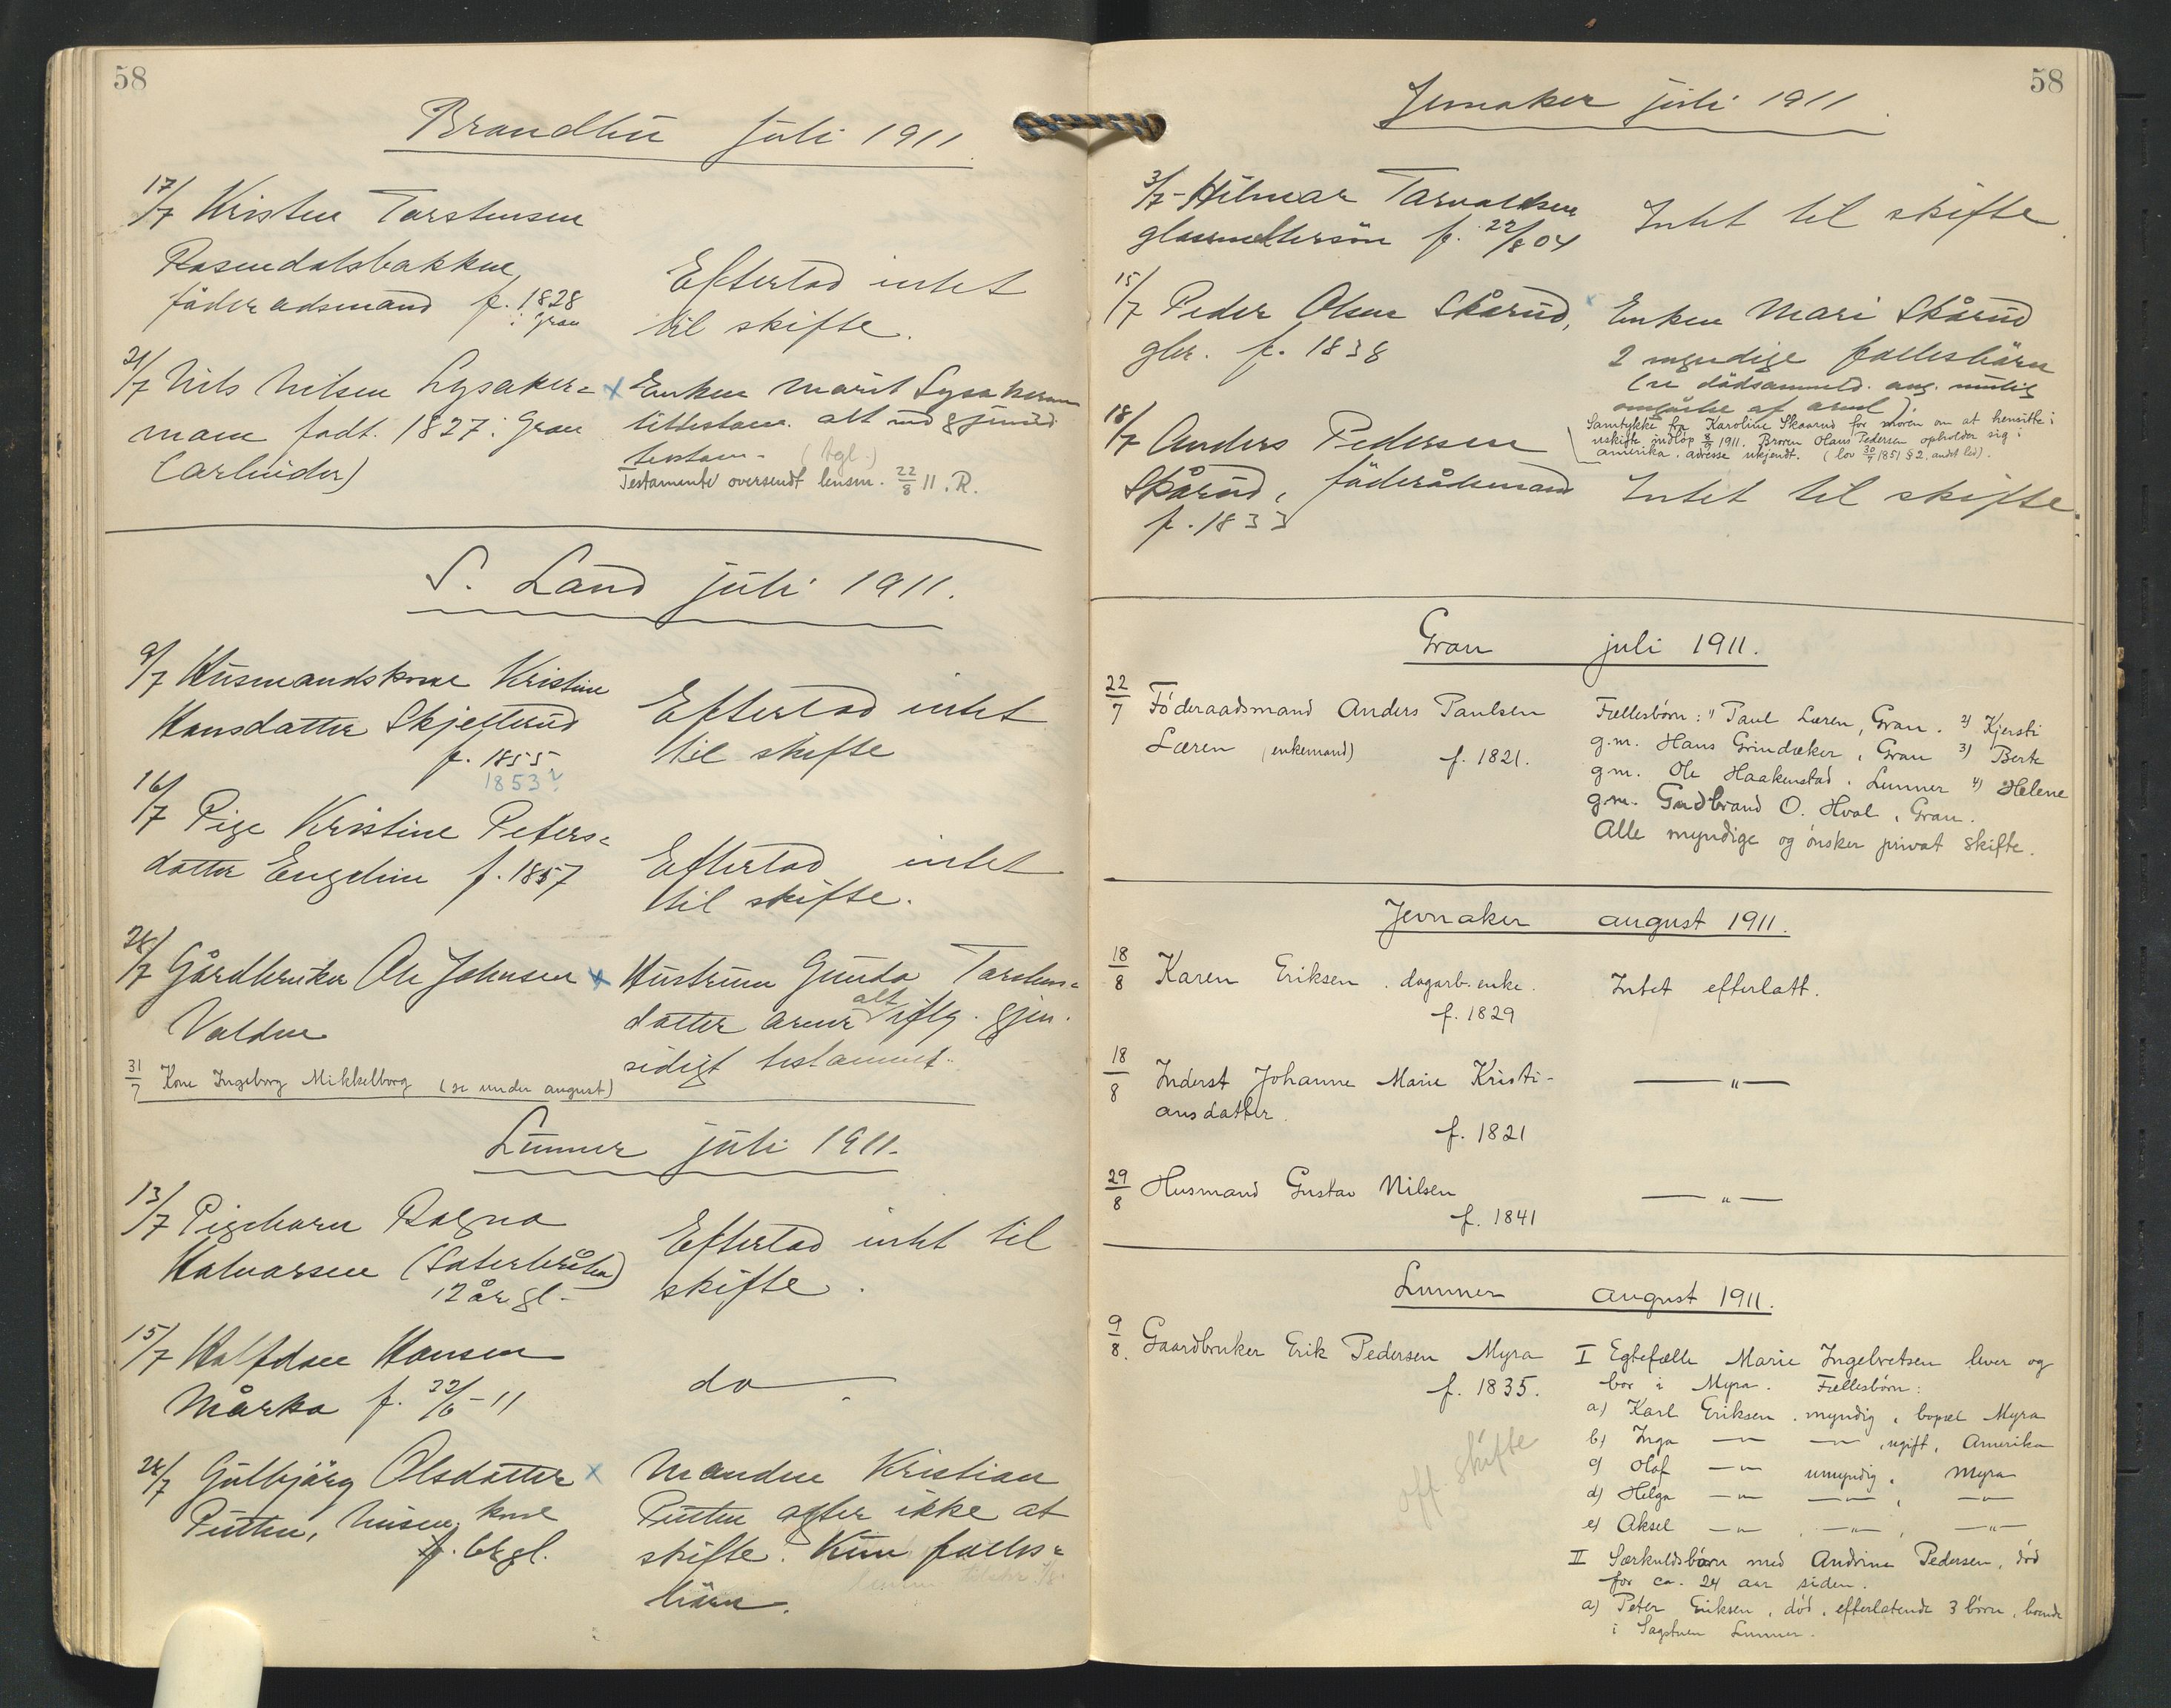 58
Brandbu juli 1911.
17/7 Kristen Torstensen
Rosendalsbakken,
föderadsmand f. 1828
i Gran
Efterlod intet
til skifte.
21/7 Nils Nilsen Lysaker=
moen født 1827 i Gran
(arbeider)
x Enken Marit Lysakermoen
alt
(tgl.)
Testamente oversendt lensm. 22/8 11. R.
S. Land juli 1911.
9/7 Husmandskone Kristine
Hansdatter Skjellerud
f. 1855
1853?
Efterlod intet
til skifte
16/7 Pige Kristine Peters=
datter Engelien f. 1857
Efterlod intet
til skifte.
28/7 Gårdbruker Ole Johnsen x
Volden
Hustruen Gunda Torstens=
datter arver alt iflg. gjen.
sidigt testament.
31/7 Kone Ingeborg Mikkelborg (se under august)
Lunner juli 1911.
13/7 Pigebarn Ragna
Halvorsen (Sæterbråten)
12 år gl.
Efterlod intet til
skifte.
15/7 Halfdan Hansen
Mårka f. 22/6-11
do
28/7 Gulbjörg Olsdatter x
Putten, kone
gl.
Manden Kristian
Putten agter ikke at
skifte. Kun fælles=
börn.
58
Jevnaker juli 1911.
3/7- Hilmar Torvaldsen
glasmeltersön f. 22/8 04
Intet til skifte.
15/7 Peder Olsen Skårud, x
gbr. f. 1838
Enken Mari Skårud
2 myndige fællesbörn
(se dödsanmeld. ang. mulig
omgåelse af arvel.).
Samtykke fra Karoline Skaarud for moren om at hensitte i
uskifte indløp 8/9 1911. Broren Olaus Pedersen opholder sig i
Amerika, adresse ukjendt. (lov 30/7 1851 § 2, andet led).
18/7 Anders Pedersen
Skårud, föderådsmand
f. 1833
Intet til skifte.
Gran juli 1911.
22/7 Föderaadsmand Anders Paulsen
Læren (enkemand) f. 1821.
Fællesbørn: 1) Paul Læren, Gran. 2) Kjersti
g.m. Hans Grindaker, Gran 3) Berte
g.m. Ole Haakenstad, Lunner 4) Helene
g.m. Gudbrand O. Hval, Gran.
Alle myndige og ønsker privat skifte.
Jevnaker august 1911.
18/8 Karen Eriksen, dagarb. enke.
f. 1829
Intet efterlatt.
18/8 Inderst Johanne Marie Kristi-
ansdatter.
f. 1821
— „ —
29/8 Husmand Gustav Nilsen
f. 1841
— „ —
Lunner august 1911.
9/8. Gaardbruker Erik Pedersen Myra
f. 1835.
off. skifte
I Egtefælle Marie Ingebretsen lever og
bor i Myra. Fællesbørn:
a) Karl Eriksen, myndig, bopæl Myra
b) Inga — „ — — „ —, ugift, Amerika
c) Olaf — „ — umyndig, Myra
d) Helga — „ — — „ —, — „ —
e) Aksel — „ —, — „ —, — „ —
II Særkuldsbørn med Andrine Pedersen, død
for ca. 24 aar siden.
a) Peter Eriksen, død, efterlatende 3 børn, boende
i Sagstuen Lunner.